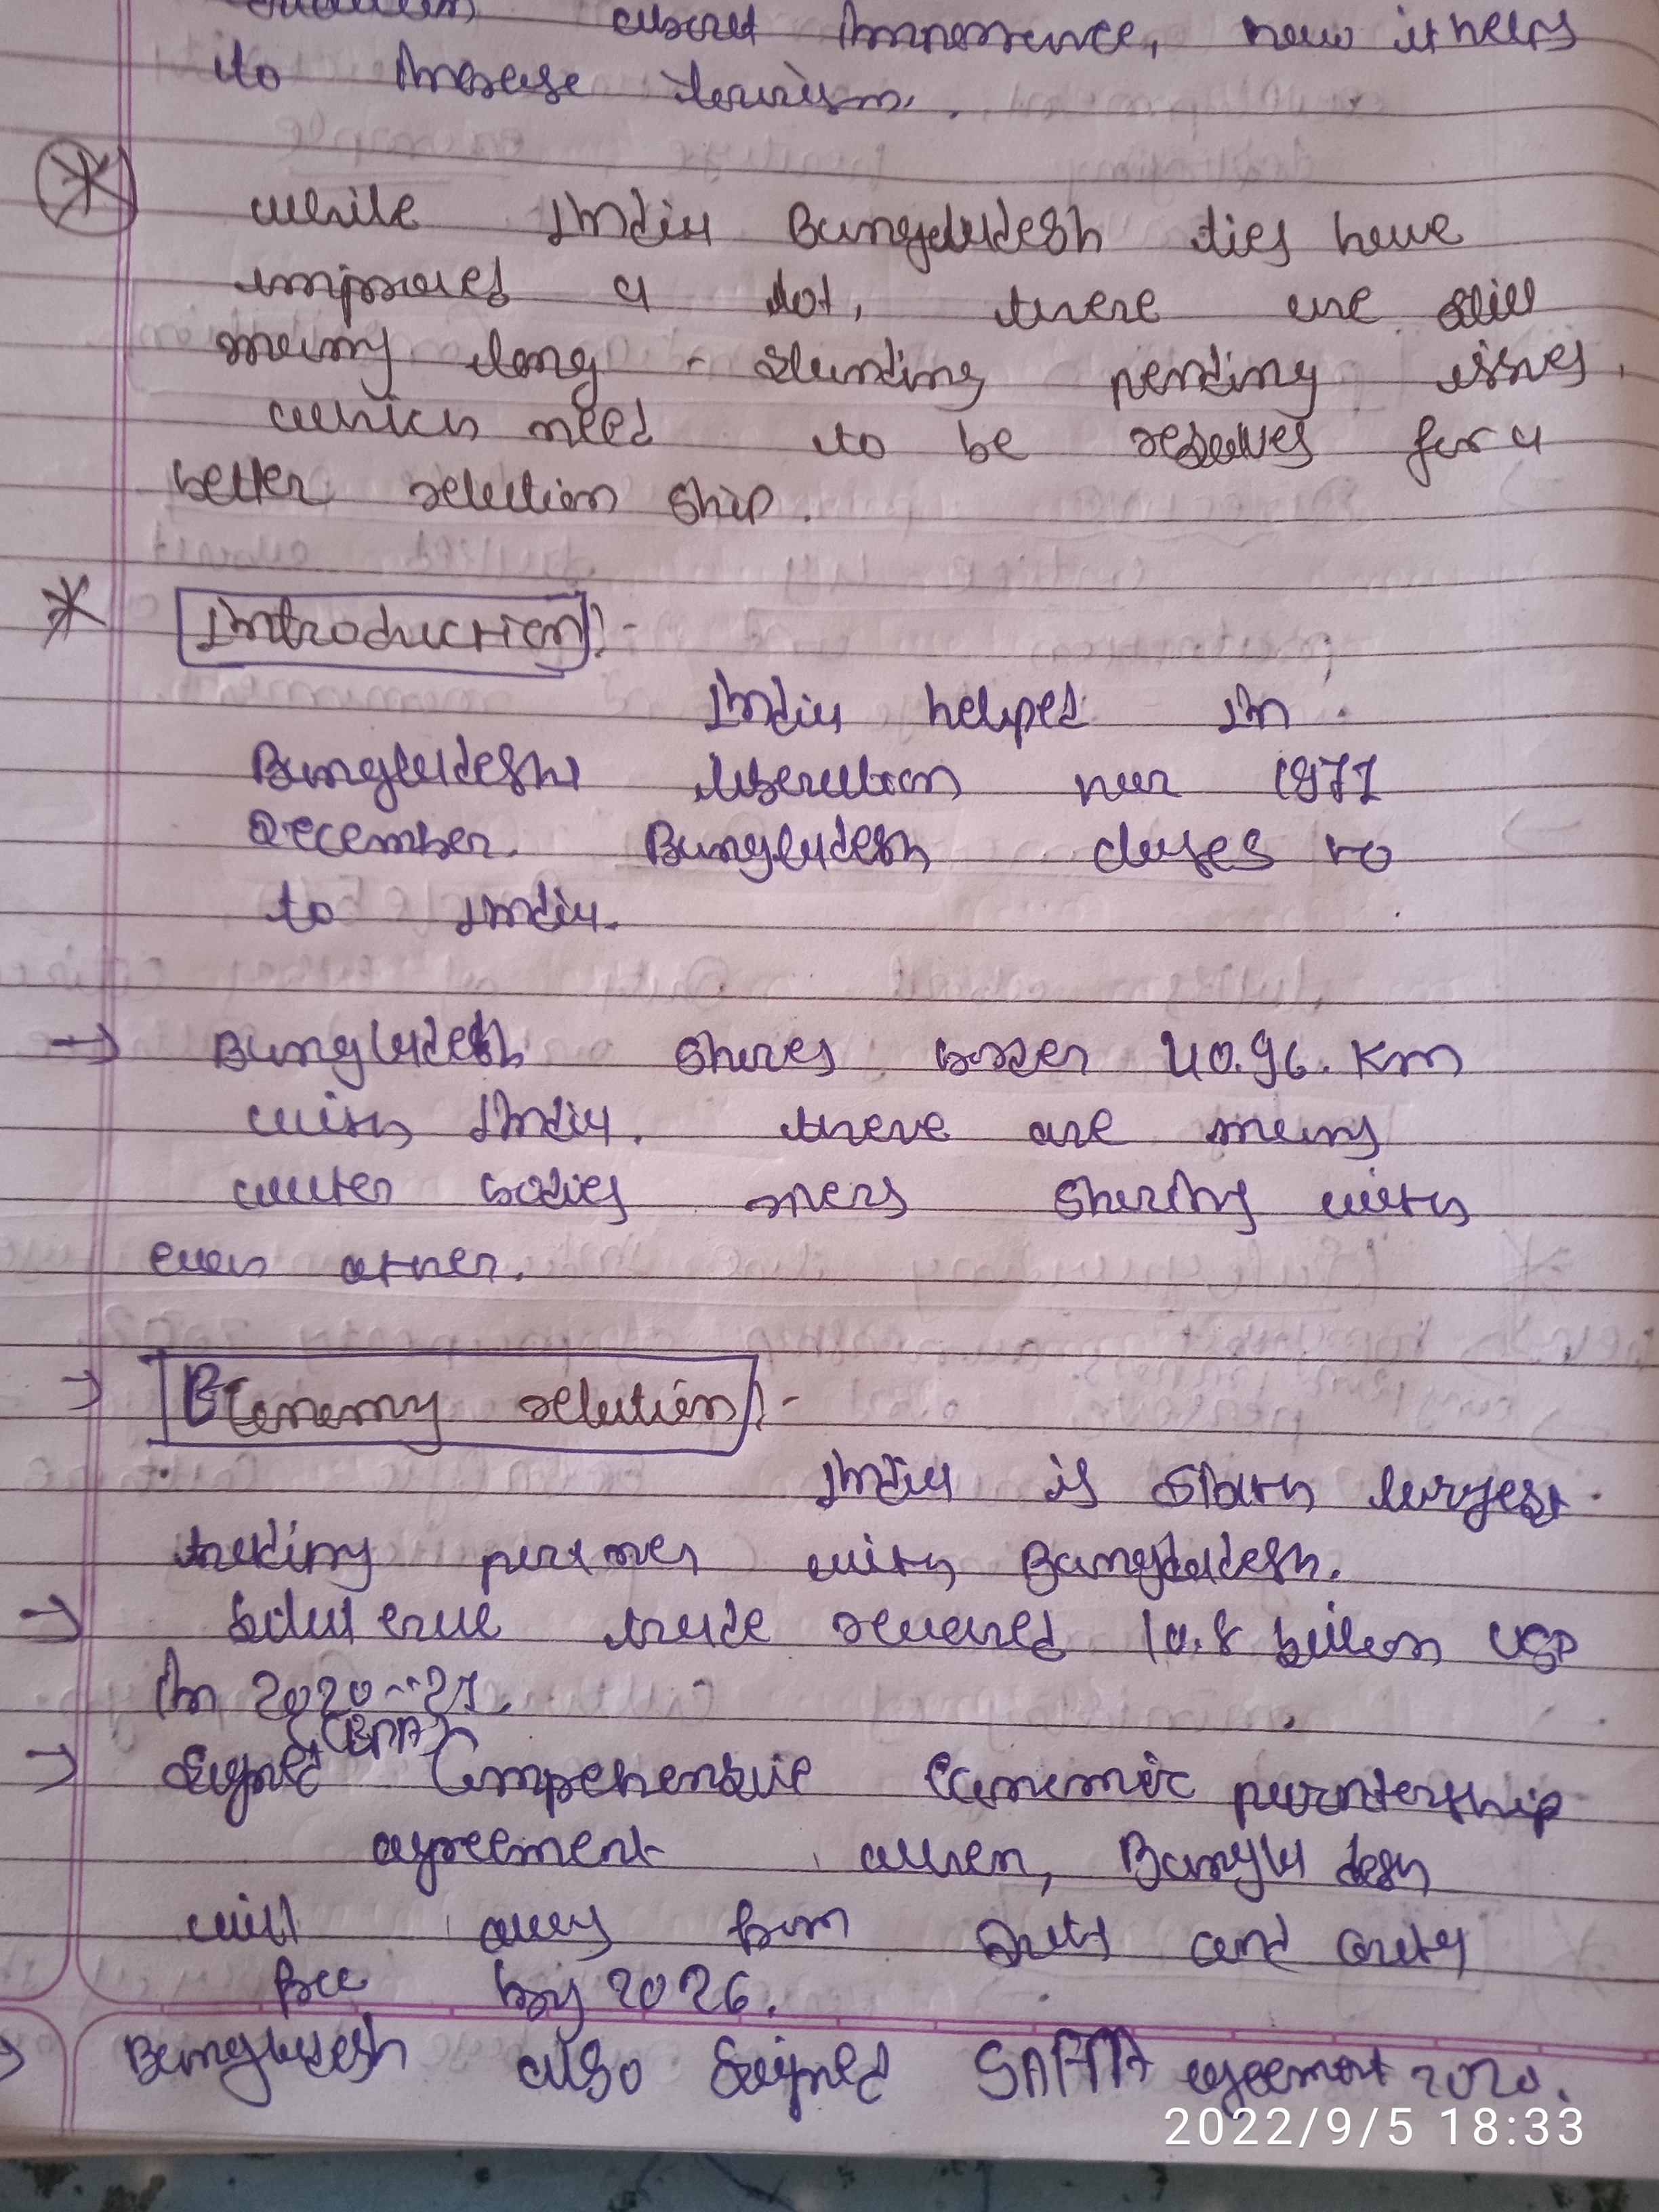 about importance, how it helps
to increase tourism.
while India Bangladesh ties have
improved a lot, there are still
many long - standing pending issues,
which need to be resolves for a
better relation ship.
Introduction:-
India helped in
Bangladesh liberation war 1971
December. Bangladesh to
to India.
Bangladesh shares border 40.96. Km
with India. there are many
water bodies sharing with
each other.
Economy relation:-
India is largest
trading partner with Bangladesh.
Bilateral trade reached 10.8 billion USD
In 2020-21.
Signed Comprehensive Economic partnership
agreement when, Bangladesh
will and
by 2026.
Bangladesh also Signed SAFTA agreement 2020.
2022/9/5 18:33